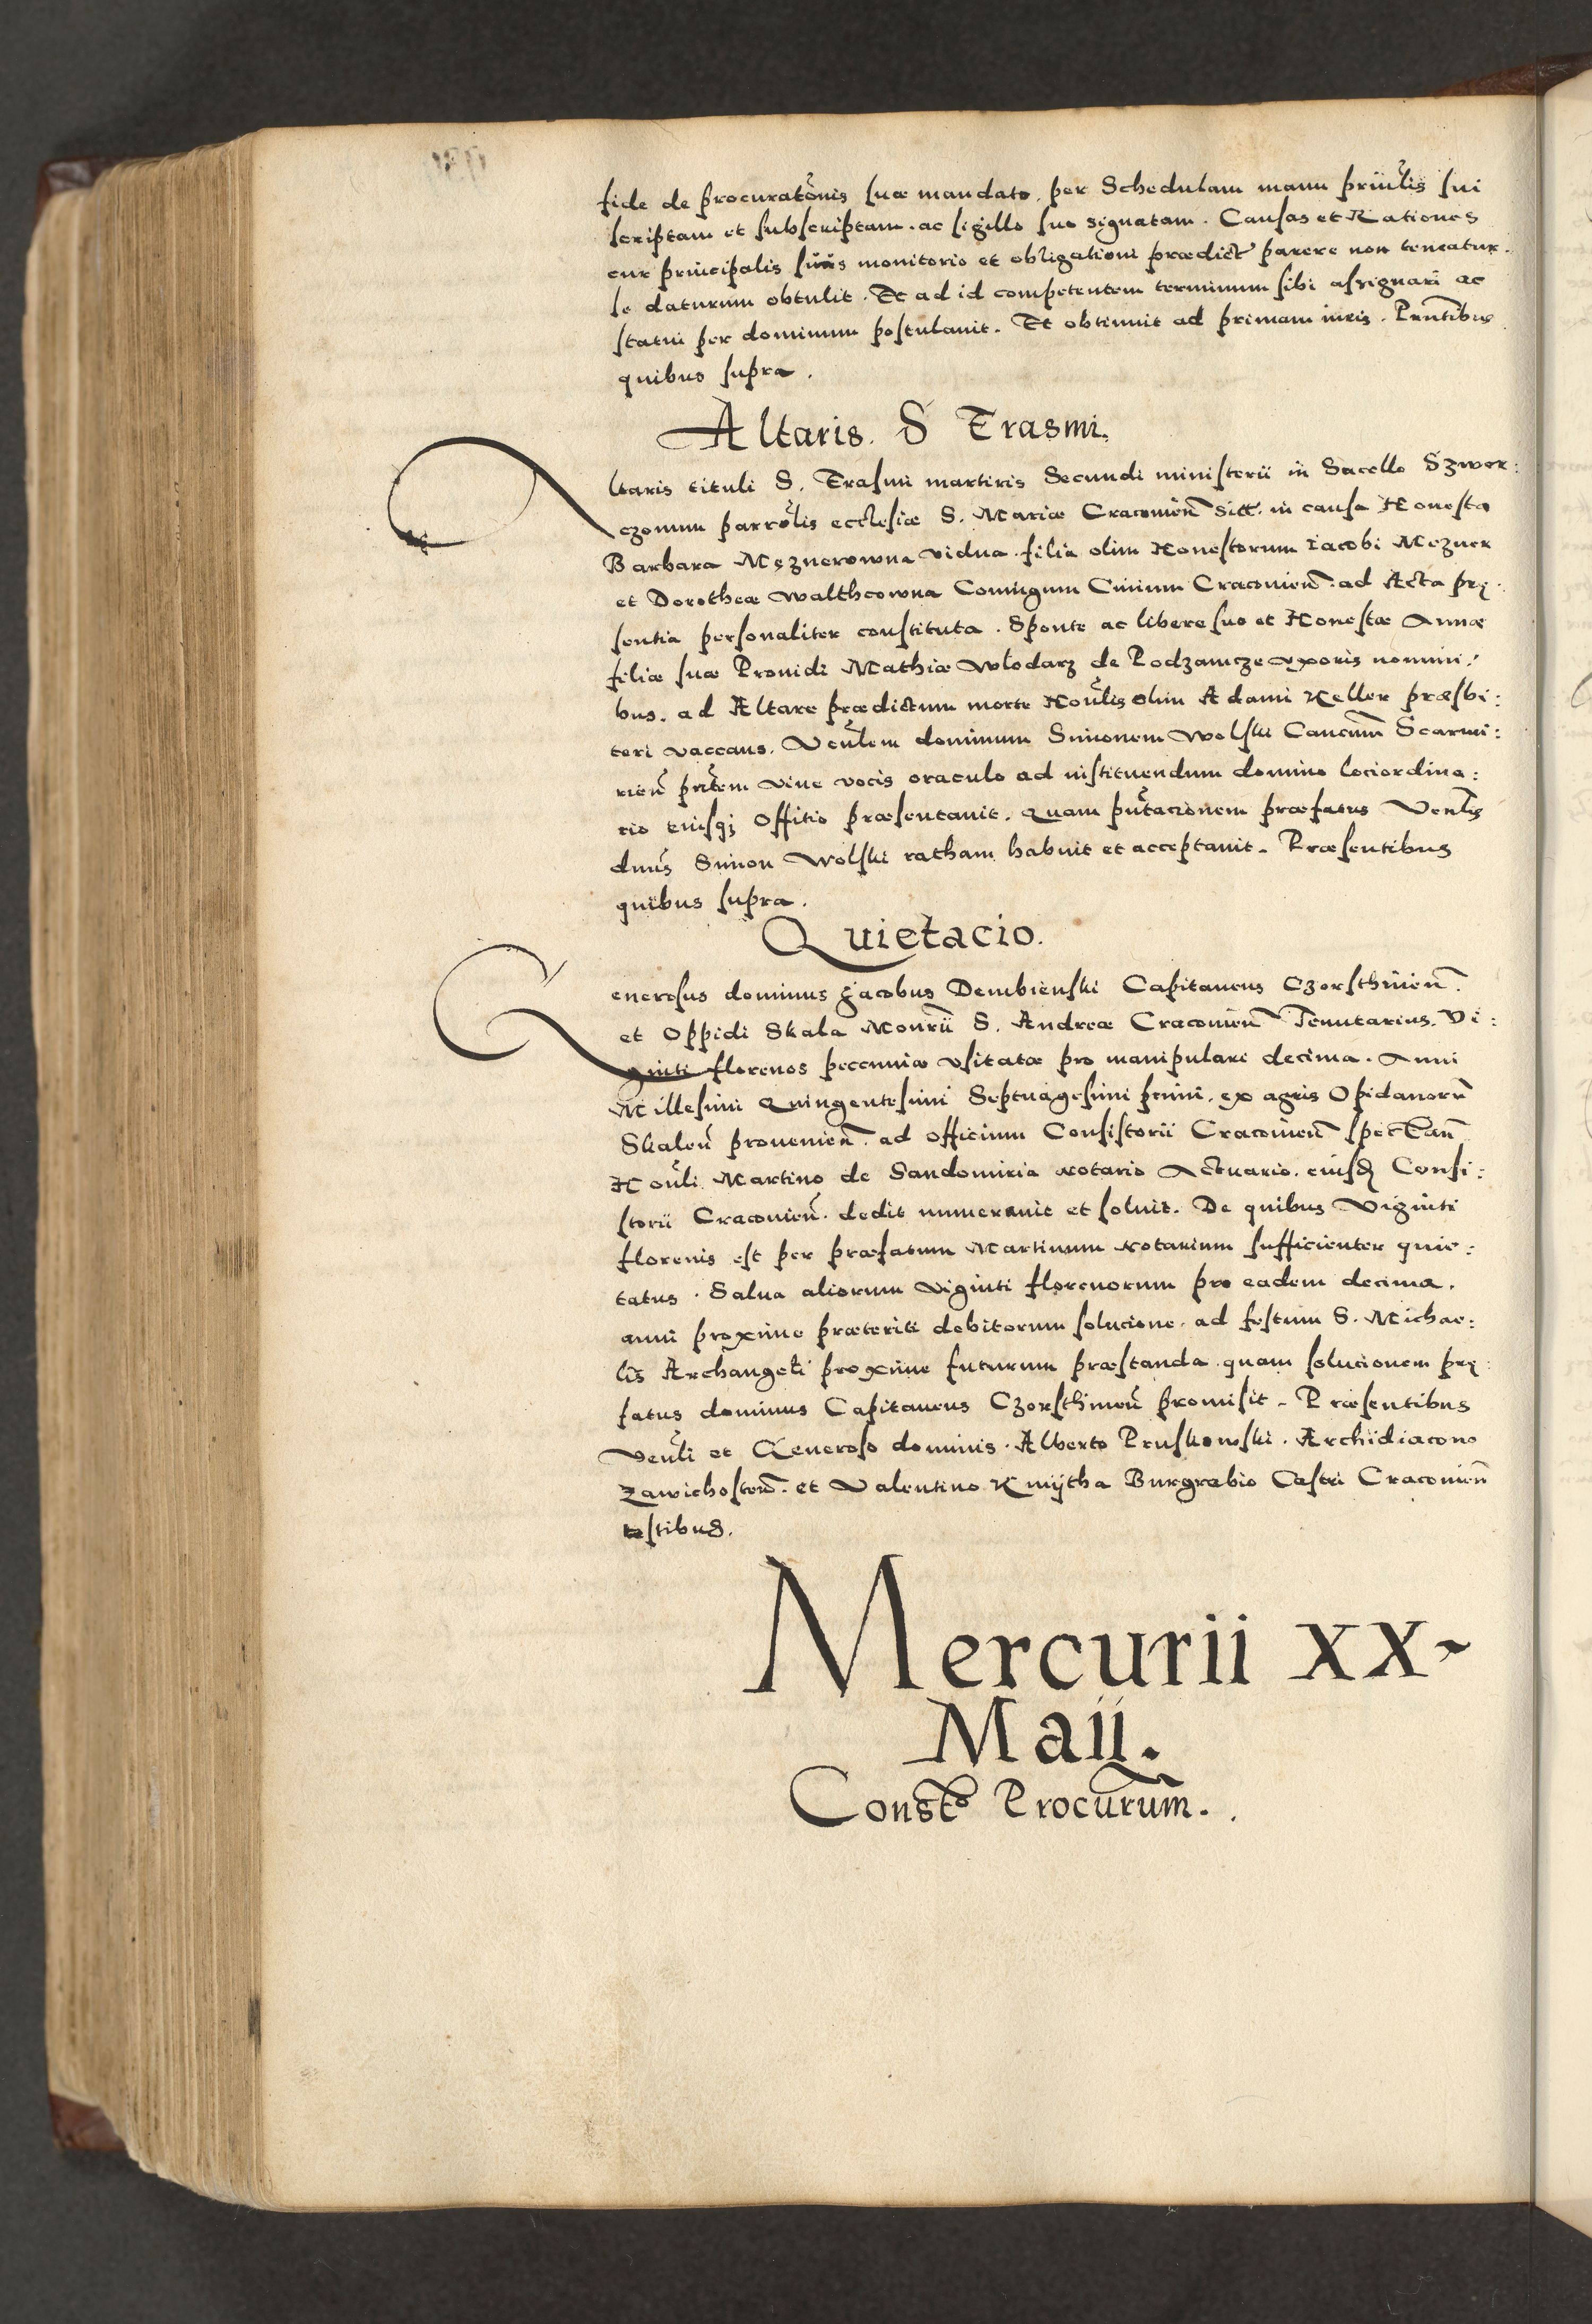 fide de procuratōnis suæ mandato, per Schedulam manu prin̄lis sui
scriptam et subscriptam. ac sigillo suo signatam. Causas et Rationes
cur principalis suus monitorio et obligationi prædict parere non teneatur.
se daturum obtulit. Et ad id competentem terminum sibi assignari ac
statui per dominum postulavit. Et obtinuit ad primam iuris. Pn̄tibus
quibus supra.
Altaris. S Erasmi.
ltaris tituli S. Erasmi martiris Secundi ministerii in Sacello Szwer:
czonum parrōlis ecclesiæ S. Mariæ Cracovien̄ sitt. in causa Honesta
Barbara Męznerowna vidua filia olim Honestorum Iacobi Mezner
et Dorotheæ Waltheowna Coniugum Civium Cracovien̄. ad Acta prę:
sentia personaliter constituta. Sponte ac libere suo et Honestæ Annæ
filiæ suæ Providi Mathiæ Włodarz de Podzamcze uxoris nomini:
bus. ad Altare prædictum morte Hon̄lis olim Adami Keller præsbi:
teri vaccans. Ven̄lem dominum Simonem Wolski Canc̄um Scarmi:
rien̄ pn̄tem vive vocis oraculo ad instituendum domino loci ordina:
rio eiusqȝ Offitio præsentavit. Quam pn̄tacionem præfatus Ven̄lis
dnūs Simon Wolski ratham habuit et acceptavit. Præsentibus
quibus supra.
Quietacio.
enerosus dominus Jacobus Dembienski Capitaneus Czorsthinen̄.
et Oppidi Skala Mon̄rii S. Andreæ Cracovien̄ Tenutarius. Vi:
ginti florenos peccuniæ usitatæ pro manipulari decima. Anni
Millesimi Quingentesimi Septuagesimi primi. ex agris Opidanorū
Skalen̄ provenien̄. ad officium Consistorii Cracovien̄ spectan̄
Hon̄li Martino de Sandomiria Notario Actuario. eiusd Consi:
storii Cracovien̄. dedit numeravit et solvit. De quibus Viginti
florenis est per præfatum Martinum Notarium sufficienter quie:
tatus. Salva aliorum viginti florenorum pro eadem decima.
anni proxime præteriti debitorum solucione. ad festum S. Michae:
lis Archangeli proxime futurum præstanda. quam solucionem prę:
fatus dominus Capitaneus Czorsthinen̄ promisit. Præsentibus
Ven̄li et Generoso dominis. Alberto Pruskowski. Archidiacono
Zawichosten̄. et Valentino Kmijtha Burgrabio Castri Cracovien̄
testibus.
Mercurii XX
Maii.
Constō Procurum̄.